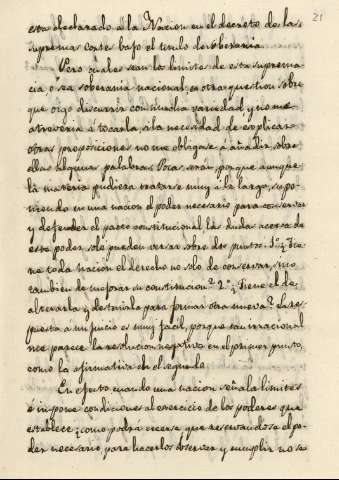 21
está declarado á la Nacion en el decreto de las
supremas cortes bajo el titulo de soberania.
Pero cuales sean los limites de esta suprema-
cia o sea soberania nacional, es otra question sobre
que oigo discurrir con mucha variedad, y no me
atreveria á tocarla, si la necesidad de explicar
otras proposiciones no me obligase á añadir sobre
ellas algunas palabras. Pocas serán, porque aunque
la materia pudiera tratarse muy á la larga, supo-
niendo en una nacion el poder necesario para conservar
y defender el pacto constitucional las dudas acerca de
este poder solo pueden versar sobre dos puntos. 1º ¿Tie-
ne toda nacion el derecho no solo de conservar, sino
tambien de mejorar su constitucion? 2º ¿Tiene el de
alterarla y destruirla para formar otra nueva? La res-
puesta á mi juicio es muy facil, porque tan irracional
me parece la resolucion negativa en el primer punto,
como la afirmativa en el segundo.
En efecto cuando una nacion señala limites
é impone condiciones al exercicio de los poderes que
establece ¿como podrá creerse que reservandose el po-
der necesario para hacerlos observar y cumplir no se